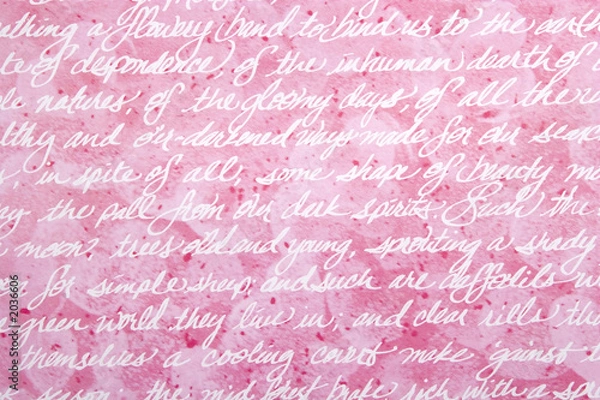 athing a flowery band to bind us to the earth
te of despondence, of the inhuman dearth of
le natures, of the gloomy days, of all the
lthy and o'er-darkened ways made for our sear
s, in spite of all, some shape of beauty mo
ay the pall from our dark spirits. Such the
e moon, trees old and young, sprouting a shady
for simple sheep; and such are daffodils w
green world they live in; and clear rills th
themselves a cooling covert make 'gainst t
season; the mid forest brake, rich with a sp
Adobe Stock | #2036606